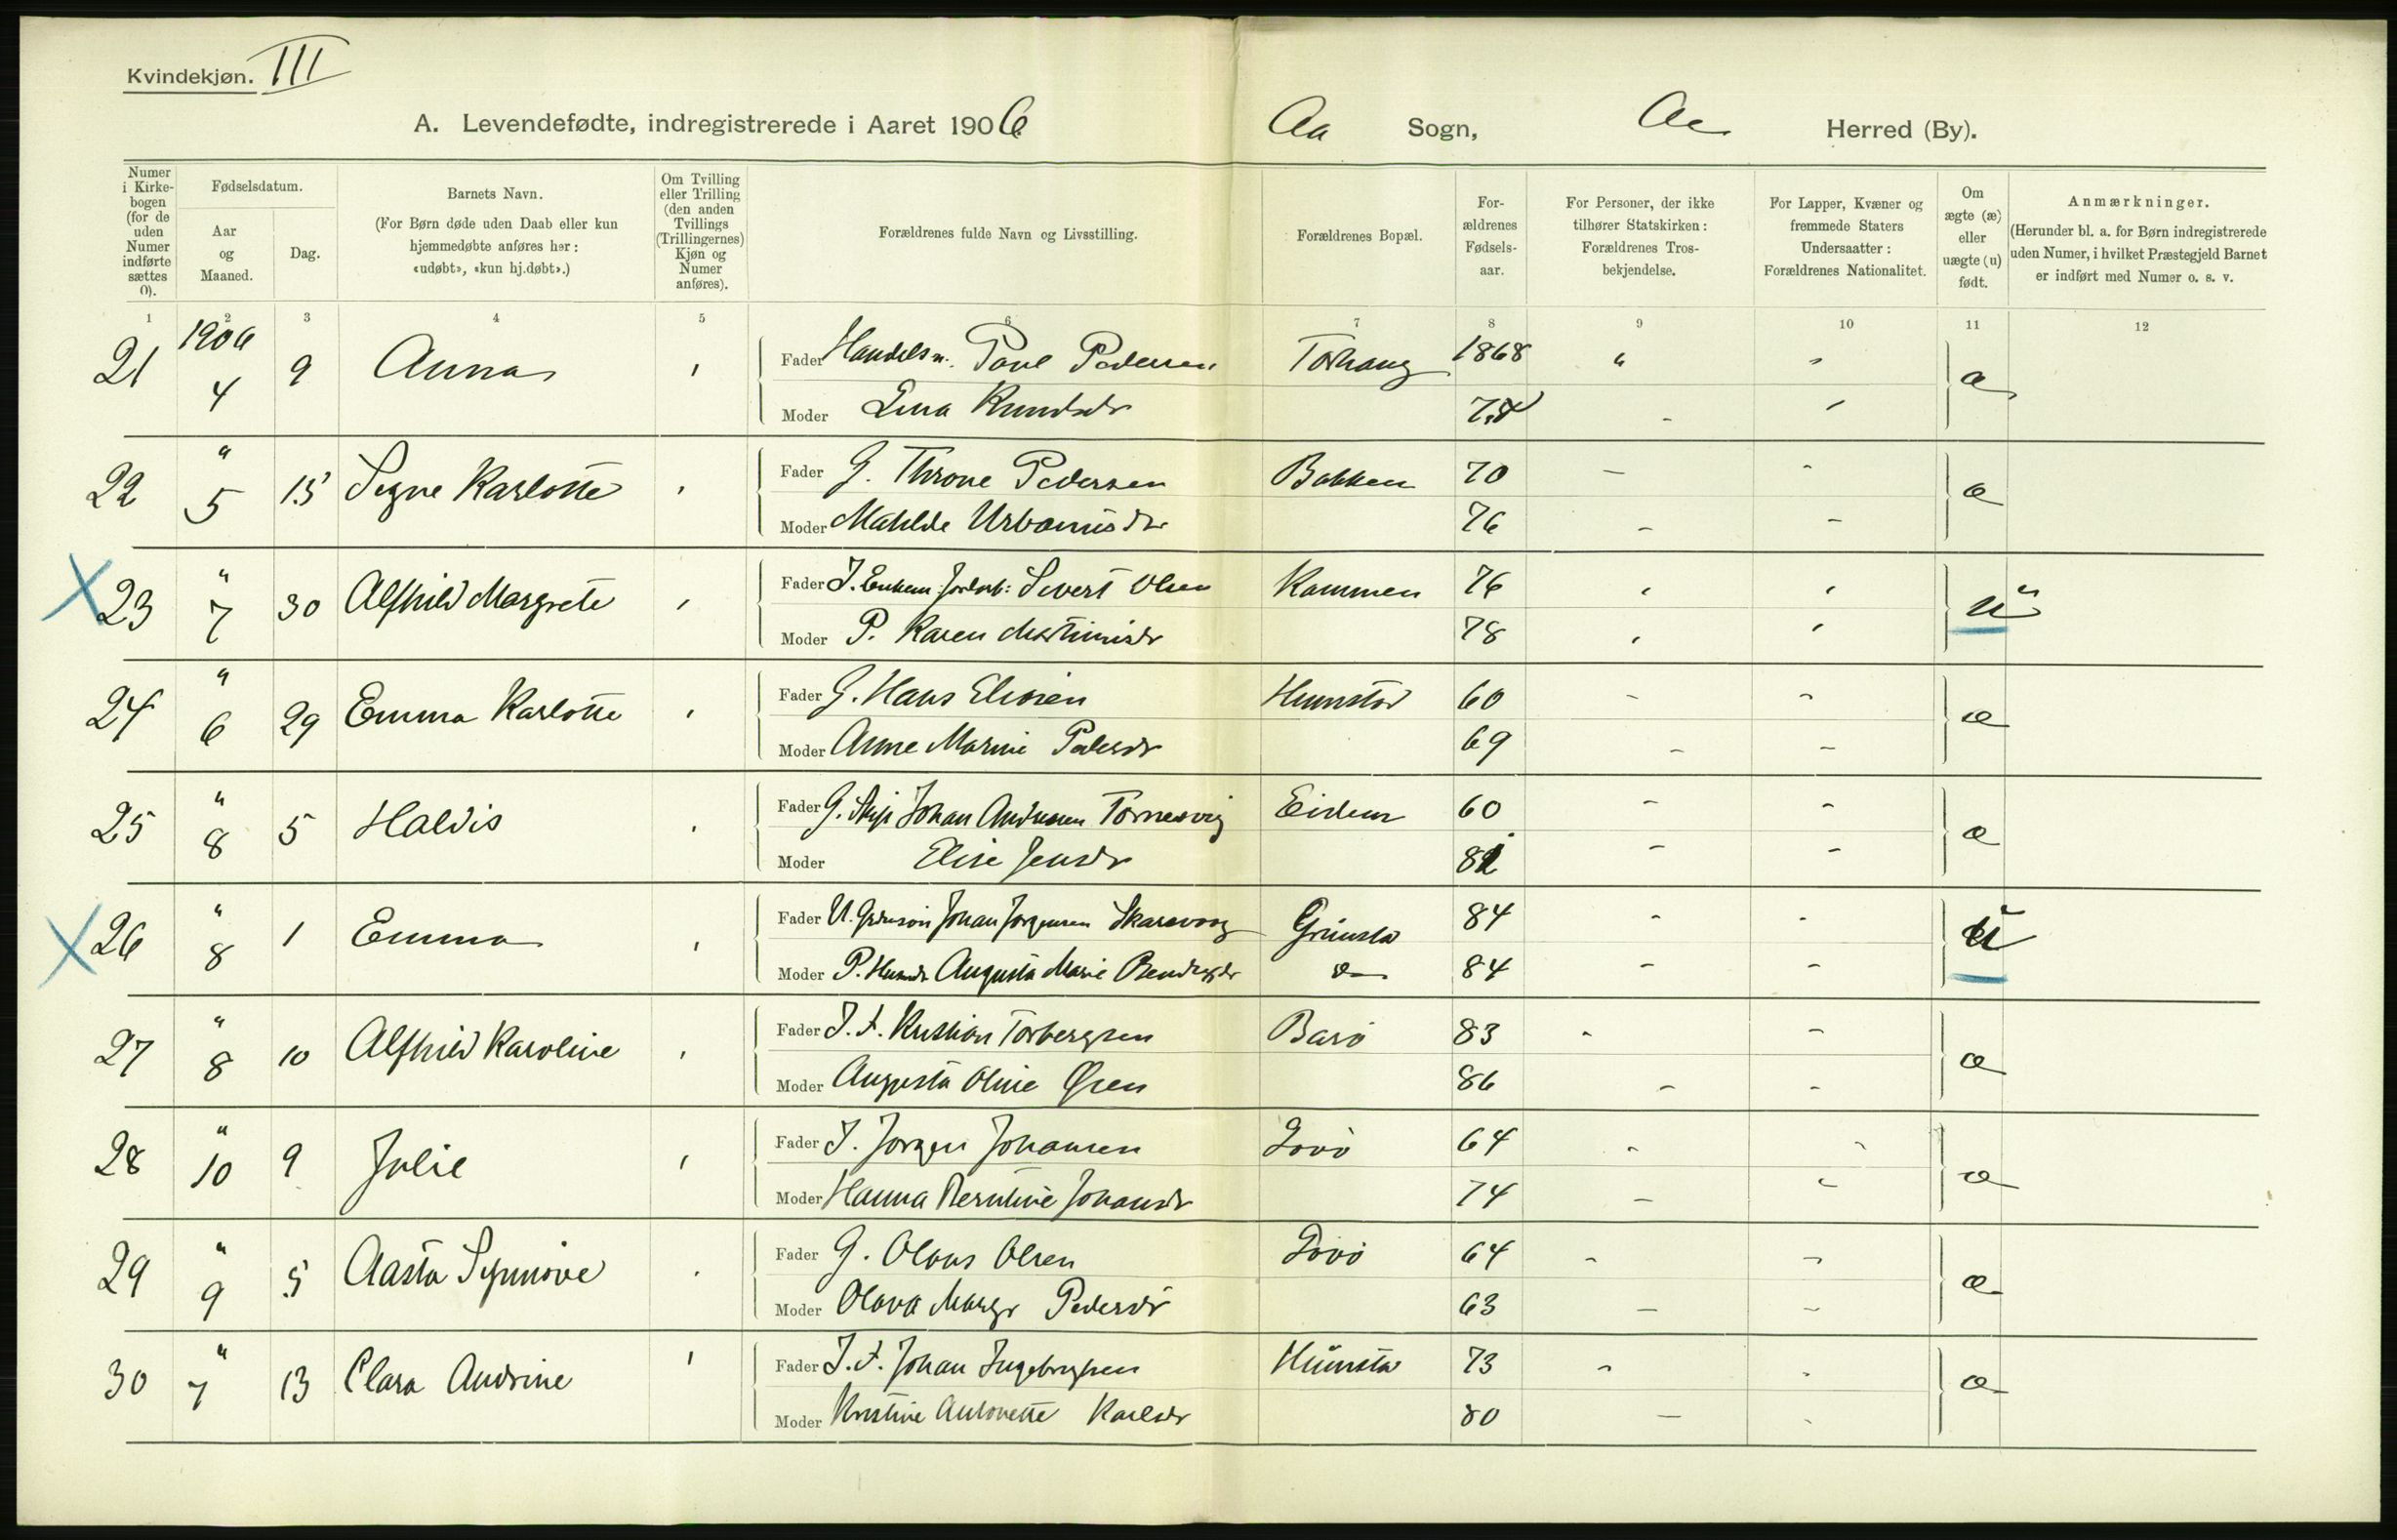 Kvindekjøn. III
A. Levendefødte, indregistrerede i Aaret 1906
Aa Sogn, Aa Herred (By).
Numer i Kirkebogen (for de uden Numer indførte sættes 0).
Fødselsdatum.
Aar og Maaned.
Dag.
Barnets Navn.
(For Børn døde uden Daab eller kun hjemmedøbte anføres her: «udøbt», «kun hj.døbt».)
Om Tvilling eller Trilling (den anden Tvillings (Trillingernes) Kjøn og Numer anføres).
Forældrenes fulde Navn og Livsstilling.
Forældrenes Bopæl.
Forældrenes Fødselsaar.
For Personer, der ikke tilhører Statskirken: Forældrenes Trosbekjendelse.
For Lapper, Kvæner og fremmede Staters Undersaatter: Forældrenes Nationalitet.
Om ægte (æ) eller uægte (u) født.
Anmærkninger.
(Herunder bl. a. for Børn indregistrerede uden Numer, i hvilket Præstegjeld Barnet er indført med Numer o. s. v.
1 2 3 4 5 6 7 8 9 10 11 12
21 1906 4 9 Anna Fader Handelsm. Povl Pedersen Torhaug 1868 " æ
Moder Lina Knudsdr
22 " 5 15 Signe Karlotte Fader G. Throne Pedersen Bakken 70 — æ
Moder Matilde Urbanusdr 76
23 " 7 30 Alfhild Margrete Fader Sivert Olsen Kammen 76 u
Moder P. Karen Martinisdr 78
24 " 6 29 Emma Karlotte Fader G. Hans Eliasen Humstad 60 æ
Moder Anne Marie Pedersdr 69
25 " 8 5 Haldis Fader G. Skip Johan Andersen Tornesvig Eidem 60 æ
Moder Elise Jensdr
26 " 8 1 Emma Fader U. Johan Jørgensen Skarsvaag Grimsta 84 u
Moder P. Augusta Marie do 84
27 " 8 10 Alfhild Karoline Fader J. F. Kristian Torbergsen Barø 83 æ
Moder Augusta Oline Olsen 86
28 " 10 9 Julie Fader J. Jørgen Johansen Lovø 64 æ
Moder Hanna Berntine Johansdr 74
29 " 9 5 Aasta Synnøve Fader G. Olaus Olsen Lovø 64 æ
Moder Olava Margr Pedersdr 63
30 " 7 13 Clara Andrine Fader J. F. Johan Ingebrigtsen Humsta 73 æ
Moder Kristine Antonette Karlsdr 80